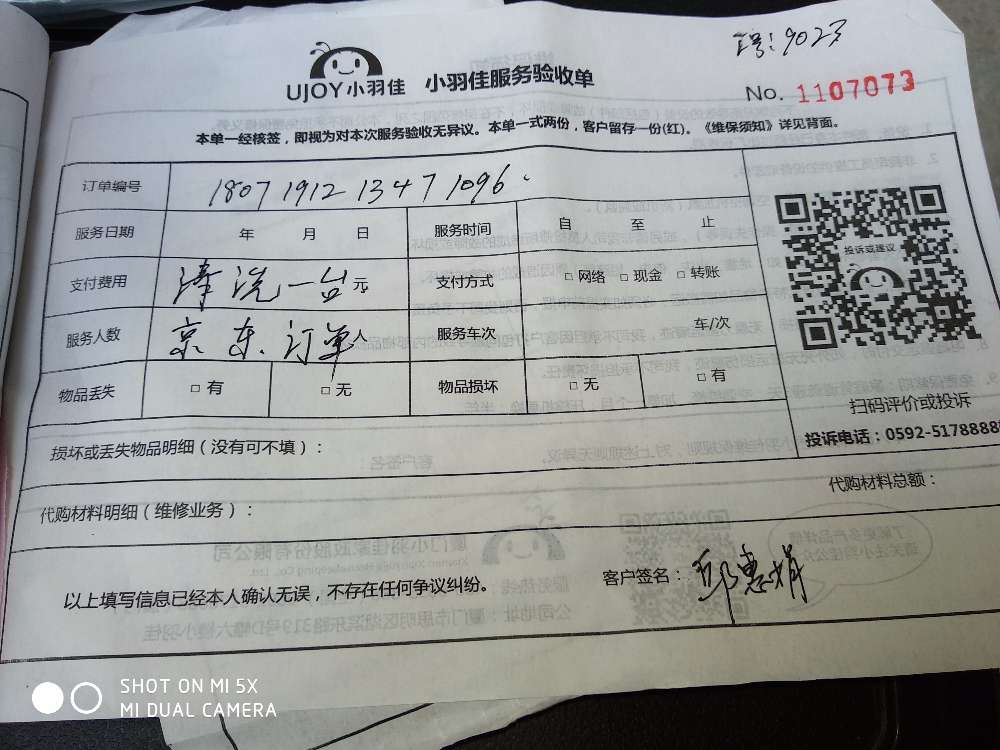 工号:9023
UJOY小羽佳 小羽佳服务验收单
No. 1107073
本单一经核签，即视为对本次服务验收无异议。本单一式两份，客户留存一份(红)。《维保须知》详见背面。
订单编号 180719121347 1096.
服务日期 年 月 日 服务时间 自 至 止
投诉或建议
支付费用 清洗一台元 支付方式 □ 网络 □ 现金 □ 转账
服务人数 京东订单人 服务车次 车/次
物品丢失 □ 有 □ 无 物品损坏 □ 无 □ 有
扫码评价或投诉
投诉电话：0592-5178888
损坏或丢失物品明细（没有可不填）：
代购材料明细（维修业务）： 代购材料总额：
以上填写信息已经本人确认无误，不存在任何争议纠纷。 客户签名：邱惠娟
SHOT ON MI 5X
MI DUAL CAMERA